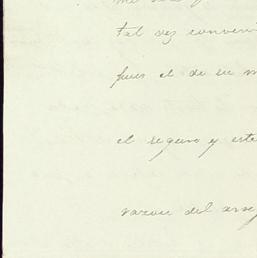 tal vez conveni
pues el de su m
el seguro y este
razon del arre